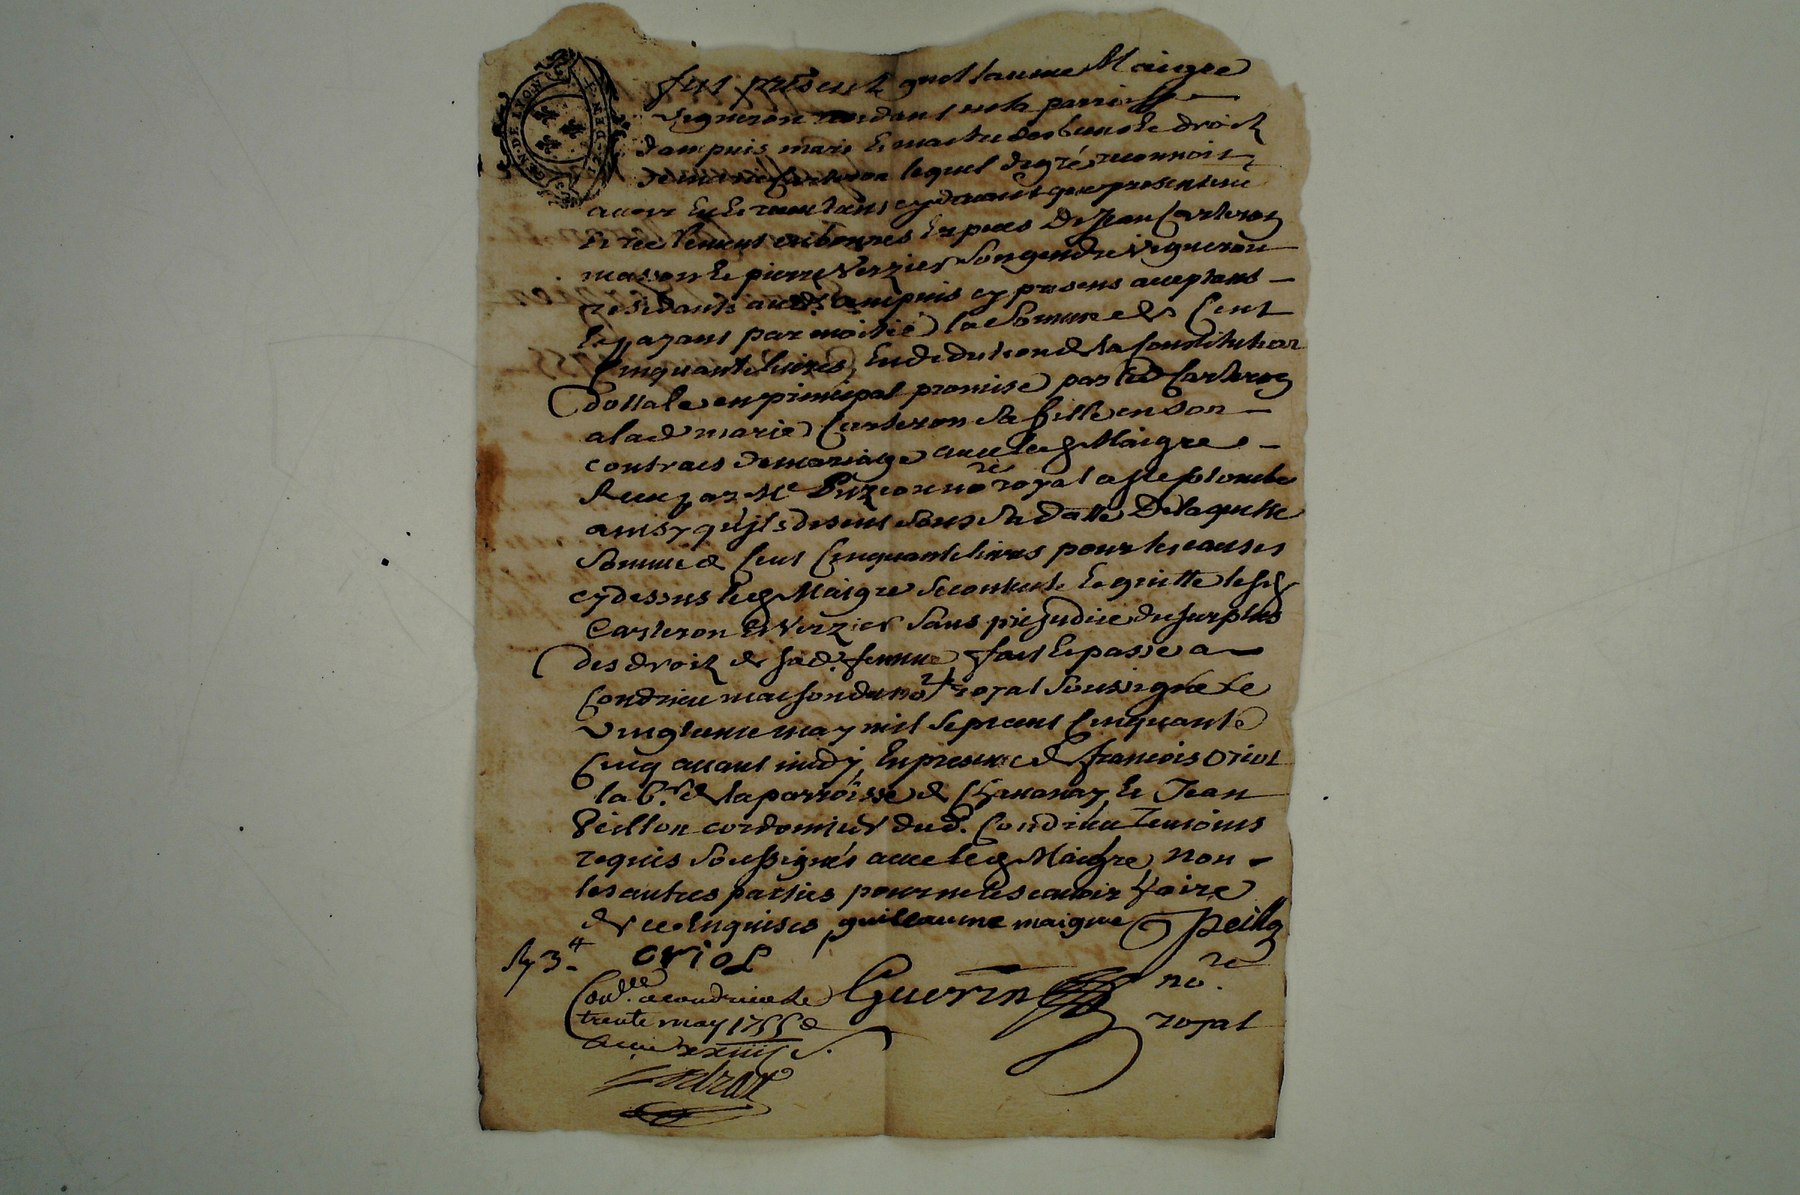 GEN. DE LYON
Fut présent guillaume Maigre
vigneron residant en la parroisse
dampuis mari et maitre des biens et droits
de marie Carteron lequel de gré reconnoit
avoir eu et receu tant cydevant que presentement
et réelement en bonnes espèces de Jean Carteron
masson et pierre Verzier son gendre vigneron
residants aud. ampuis cy presens aceptans
et payant par moitié la somme de Cent
Cinquante livres, en deduction de la Constitution
dottale en principal promise par led Carteron
a lad marie Carteron sa fille en son
contract de mariage avec led Maigre
Receu par Me no.re royal a ste Colombe
ainsy qu'ils disent sous sa datte De laquelle
somme de Cent Cinquante livres pour les causes
cydessus led Maigre se contente et quitte lesd
Carteron et Verzier sans préjudice du surplus
des droits de sad. femme, fait et passé a
Condrieu maison du no.re royal soussigné le
vingtieme may mil sept cent Cinquante
Cinq avant midy, En presence de francois Oriol
lab.r de la parroisse de Chavanay, et Jean
Peillon cordonnier dud. Condrieu Temoins
requis soussignés avec led Maigre, non
les autres parties pour ne les scavoir faire
de ce enquises, guillaume maigre Peillon
R 3 oriol
Con.llé a condrieu le Guerin no.re
trente may 1755 royal